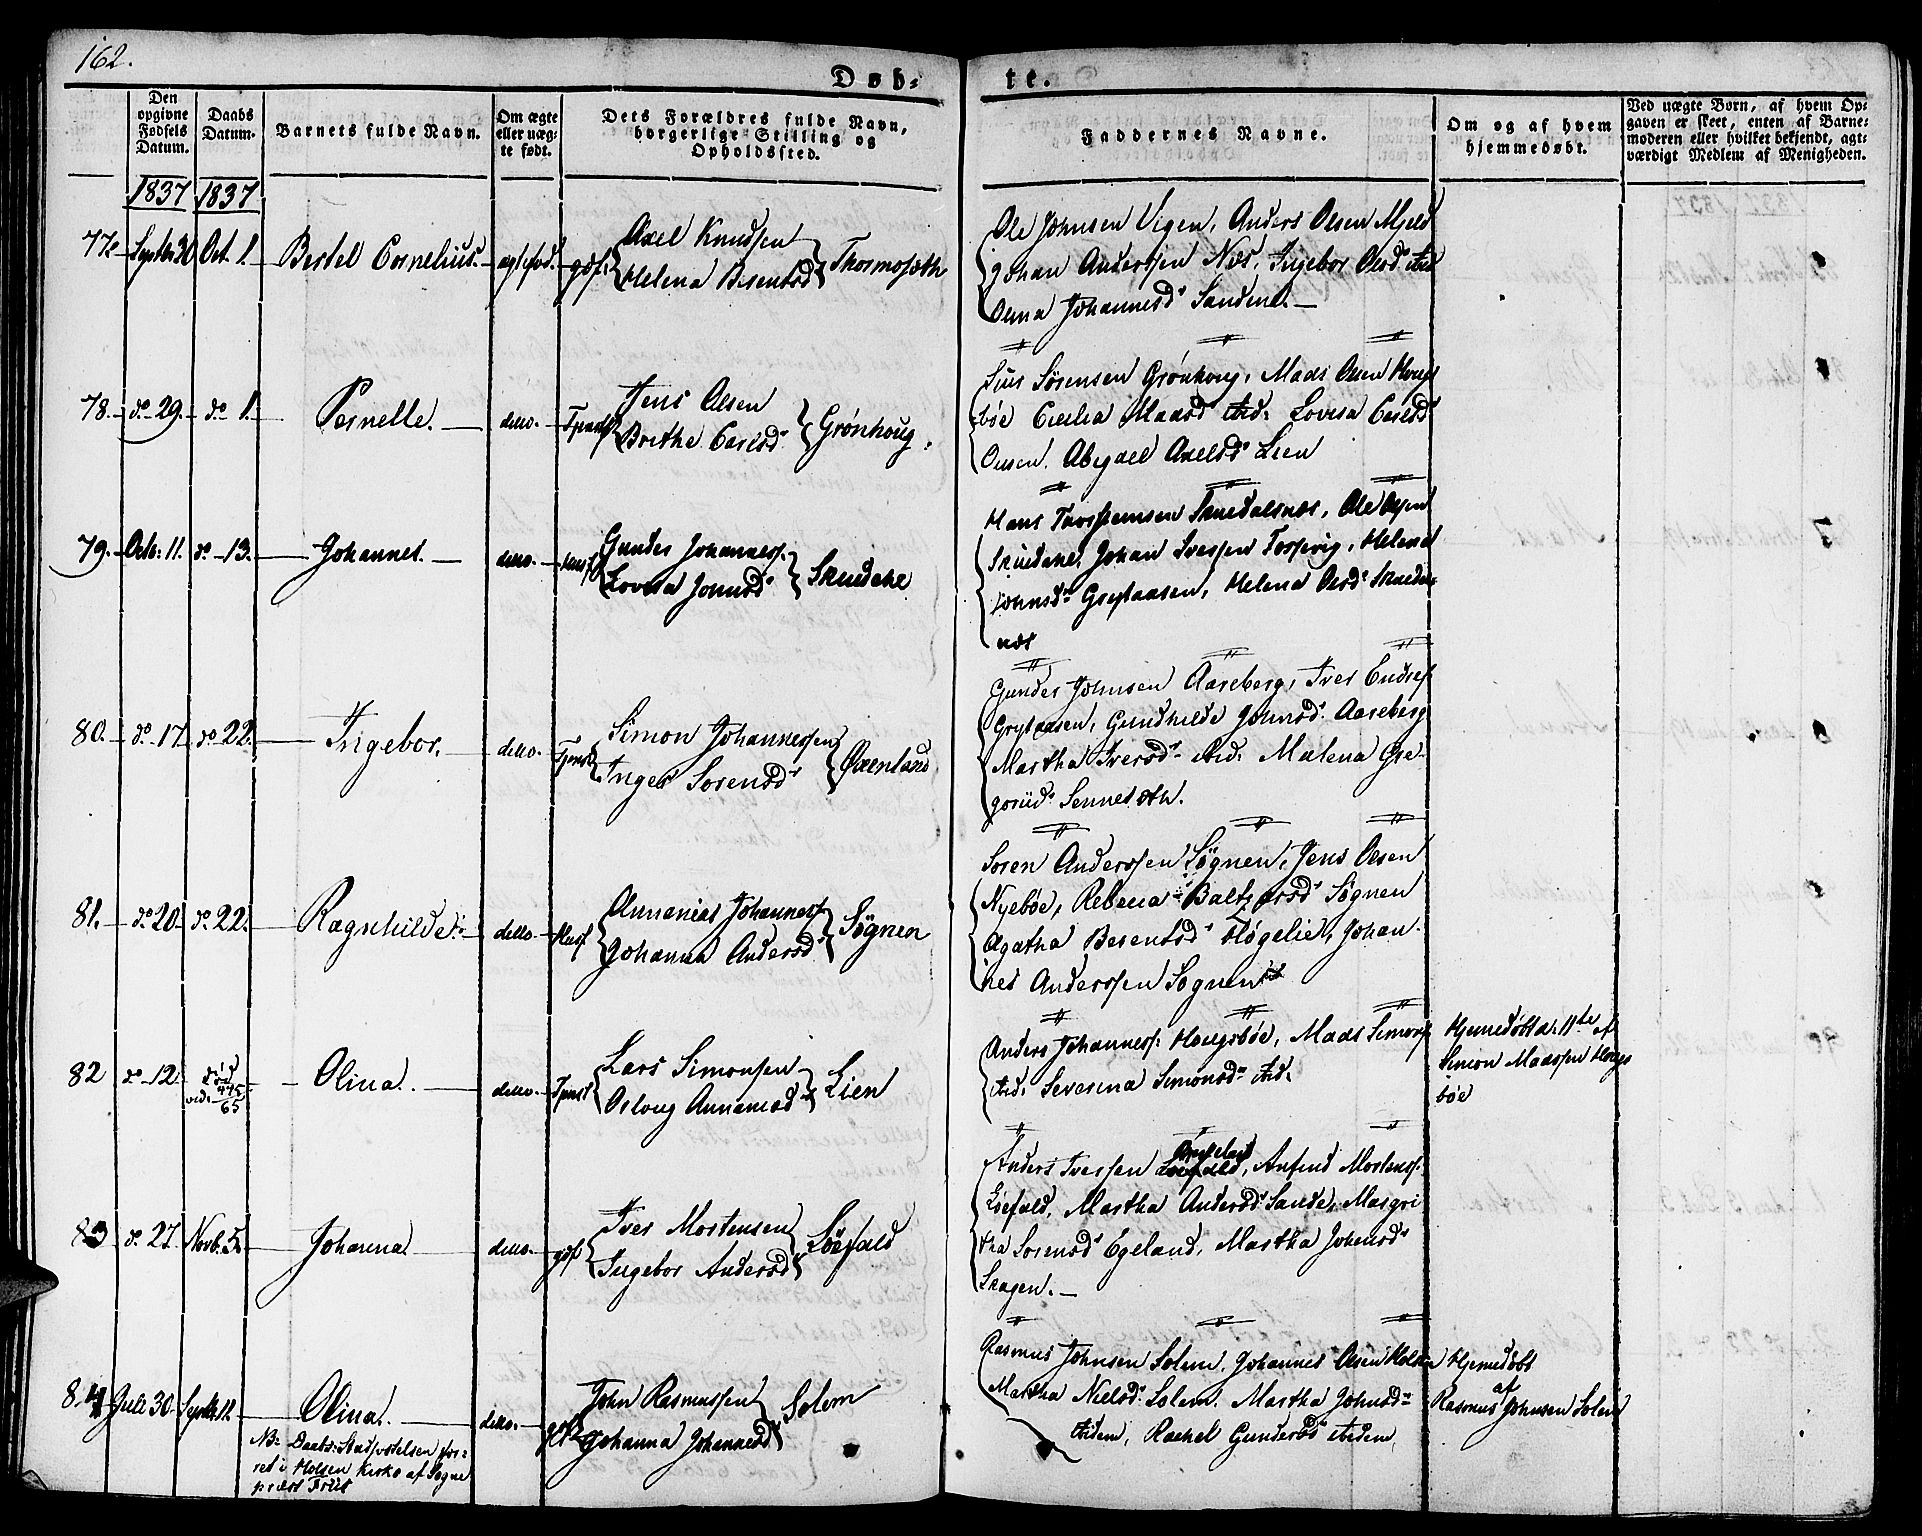 162.
Døb-
te.
Den opgivne Fødsels Datum.
Daabs Datum.
Barnets fulde Navn.
Om ægte eller uægte født.
Dets Forældres fulde Navn, borgerlige Stilling og Opholdssted.
Faddernes Navne.
Om og af hvem hjemmedøbt.
Ved uægte Børn, af hvem Opgaven er skeet, enten af Barnemoderen eller hvilket bekjendt, agtværdigt Medlem af Menigheden.
1837 1837
77. Septbr 30 Oct. 1. Bertel Cornelius. ægtefød. gdf.
Axel Knudsen
Helena Berentsd
Ole Johnsen Vigen, Anders Olsen Mjeld
Johan Anderssen Næs, Ingebor Olsd ibid
Olina Johannesd Sandene.
78. do 29. do 1. Pernelle. detto.
Jens Olsen
Brithe Carlsd Grønhoug
Sører Sørensen Grønhoug, Mads Olsen Hougs
bøe Cecilia Madsd ibid: Lovisa Carlsd
Abegael Axelsd Lien
79. Octb: 11. do 13. Johannes. detto. Huusf
Gunder Johanness.
Lovisa Jonsd Skudahl
Hans Torstensen Skudalsnæs, Ole Olsen
Skudahl, Johan Iverssen Helena
Johnsd Grytaasen, Helena Olsd Skudals
næs
80. do 17 do 22. Ingebor. detto.
Simon Johannessen
Inger Sørensd Øxenland
Gunder Johnsen Aareberg, Iver Endres
Grytaasen, Gundhilde Johnsd Aareberg
Martha Iversd ibid: Malena Gre-
goriid Sennesæth.
81. do 20. do 22. Ragnhilde. detto. Huusf
Annanias Johanness.
Johanna Andersd Søgnen
Søren Anderssen Søgnen, Jens Olsen
Nyebøe, Rebecca Baltzersd Søgnen
Agatha Berentsd Høgelie, Johan-
nes Anderssen Søgnen
82 do 12. do 1 vid: 445 65 Olina. detto.
Lars Simonsen
Osloug Annaniasd Lien
Anders Johanness: Hougsbøe, Mads Simons
ibid: Severina Simonsd ibid.
Hjemmedøbt d: 11te af
Simon Madssen Hougs
bøe
83 do 27. Novb. 5. Johanna. detto. gdf
Iver Mortensen
Ingebor Andersd Løefald
Anders Iverssen Anfind Mortenss.
Løefald, Martha Andersd Sande, Margri
tha Sørensd Egeland, Martha Johnsd
Skagen.
84 Juli 30. Septb. 12. Olina. detto.
NB: Daabs: Stadfæstelsen for-
ret i Holsen Kirke af Sogne
præst Friis
John Rasmussen
Johanna Johannesd Solem
Rasmus Johnsen Solem, Johannes Olsen Holsen
Martha Nielsd Solem. Martha Johnsd
ibidem, Rachel Gundersd ibidem,
Hjemmedøbt
af
Rasmus Johnsen Solem